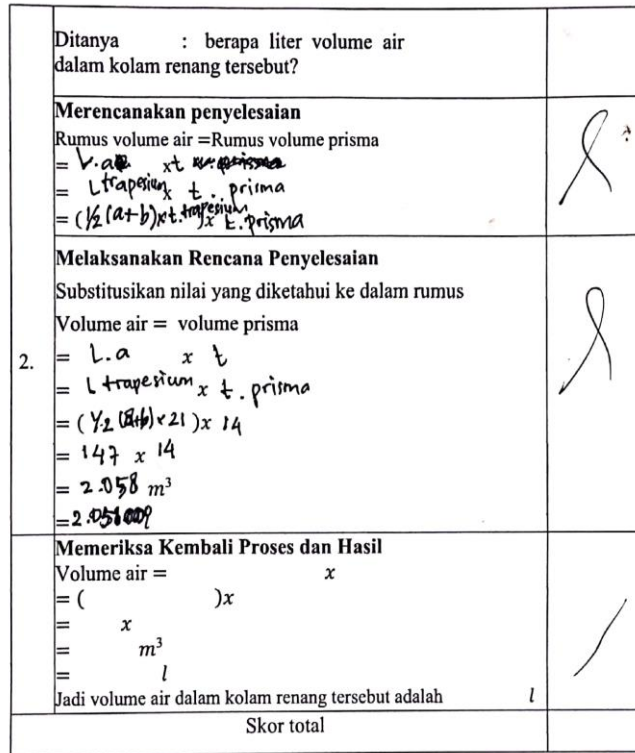 Ditanya : berapa liter volume air
dalam kolam renang tersebut?
Merencanakan penyelesaian
Rumus volume air =Rumus volume prisma
= L.a x t
= L trapesium x t . prisma
= (1/2 (a+b) x t.trapesium) x t.prisma
Melaksanakan Rencana Penyelesaian
Substitusikan nilai yang diketahui ke dalam rumus
Volume air = volume prisma
2.
= L.a x t
= L trapesium x t . prisma
= (1/2 (8+6) x 21 ) x 14
= 147 x 14
= 2.058 m³
Memeriksa Kembali Proses dan Hasil
Volume air = x
= ( )x
= x
= m³
= l
Jadi volume air dalam kolam renang tersebut adalah l
Skor total